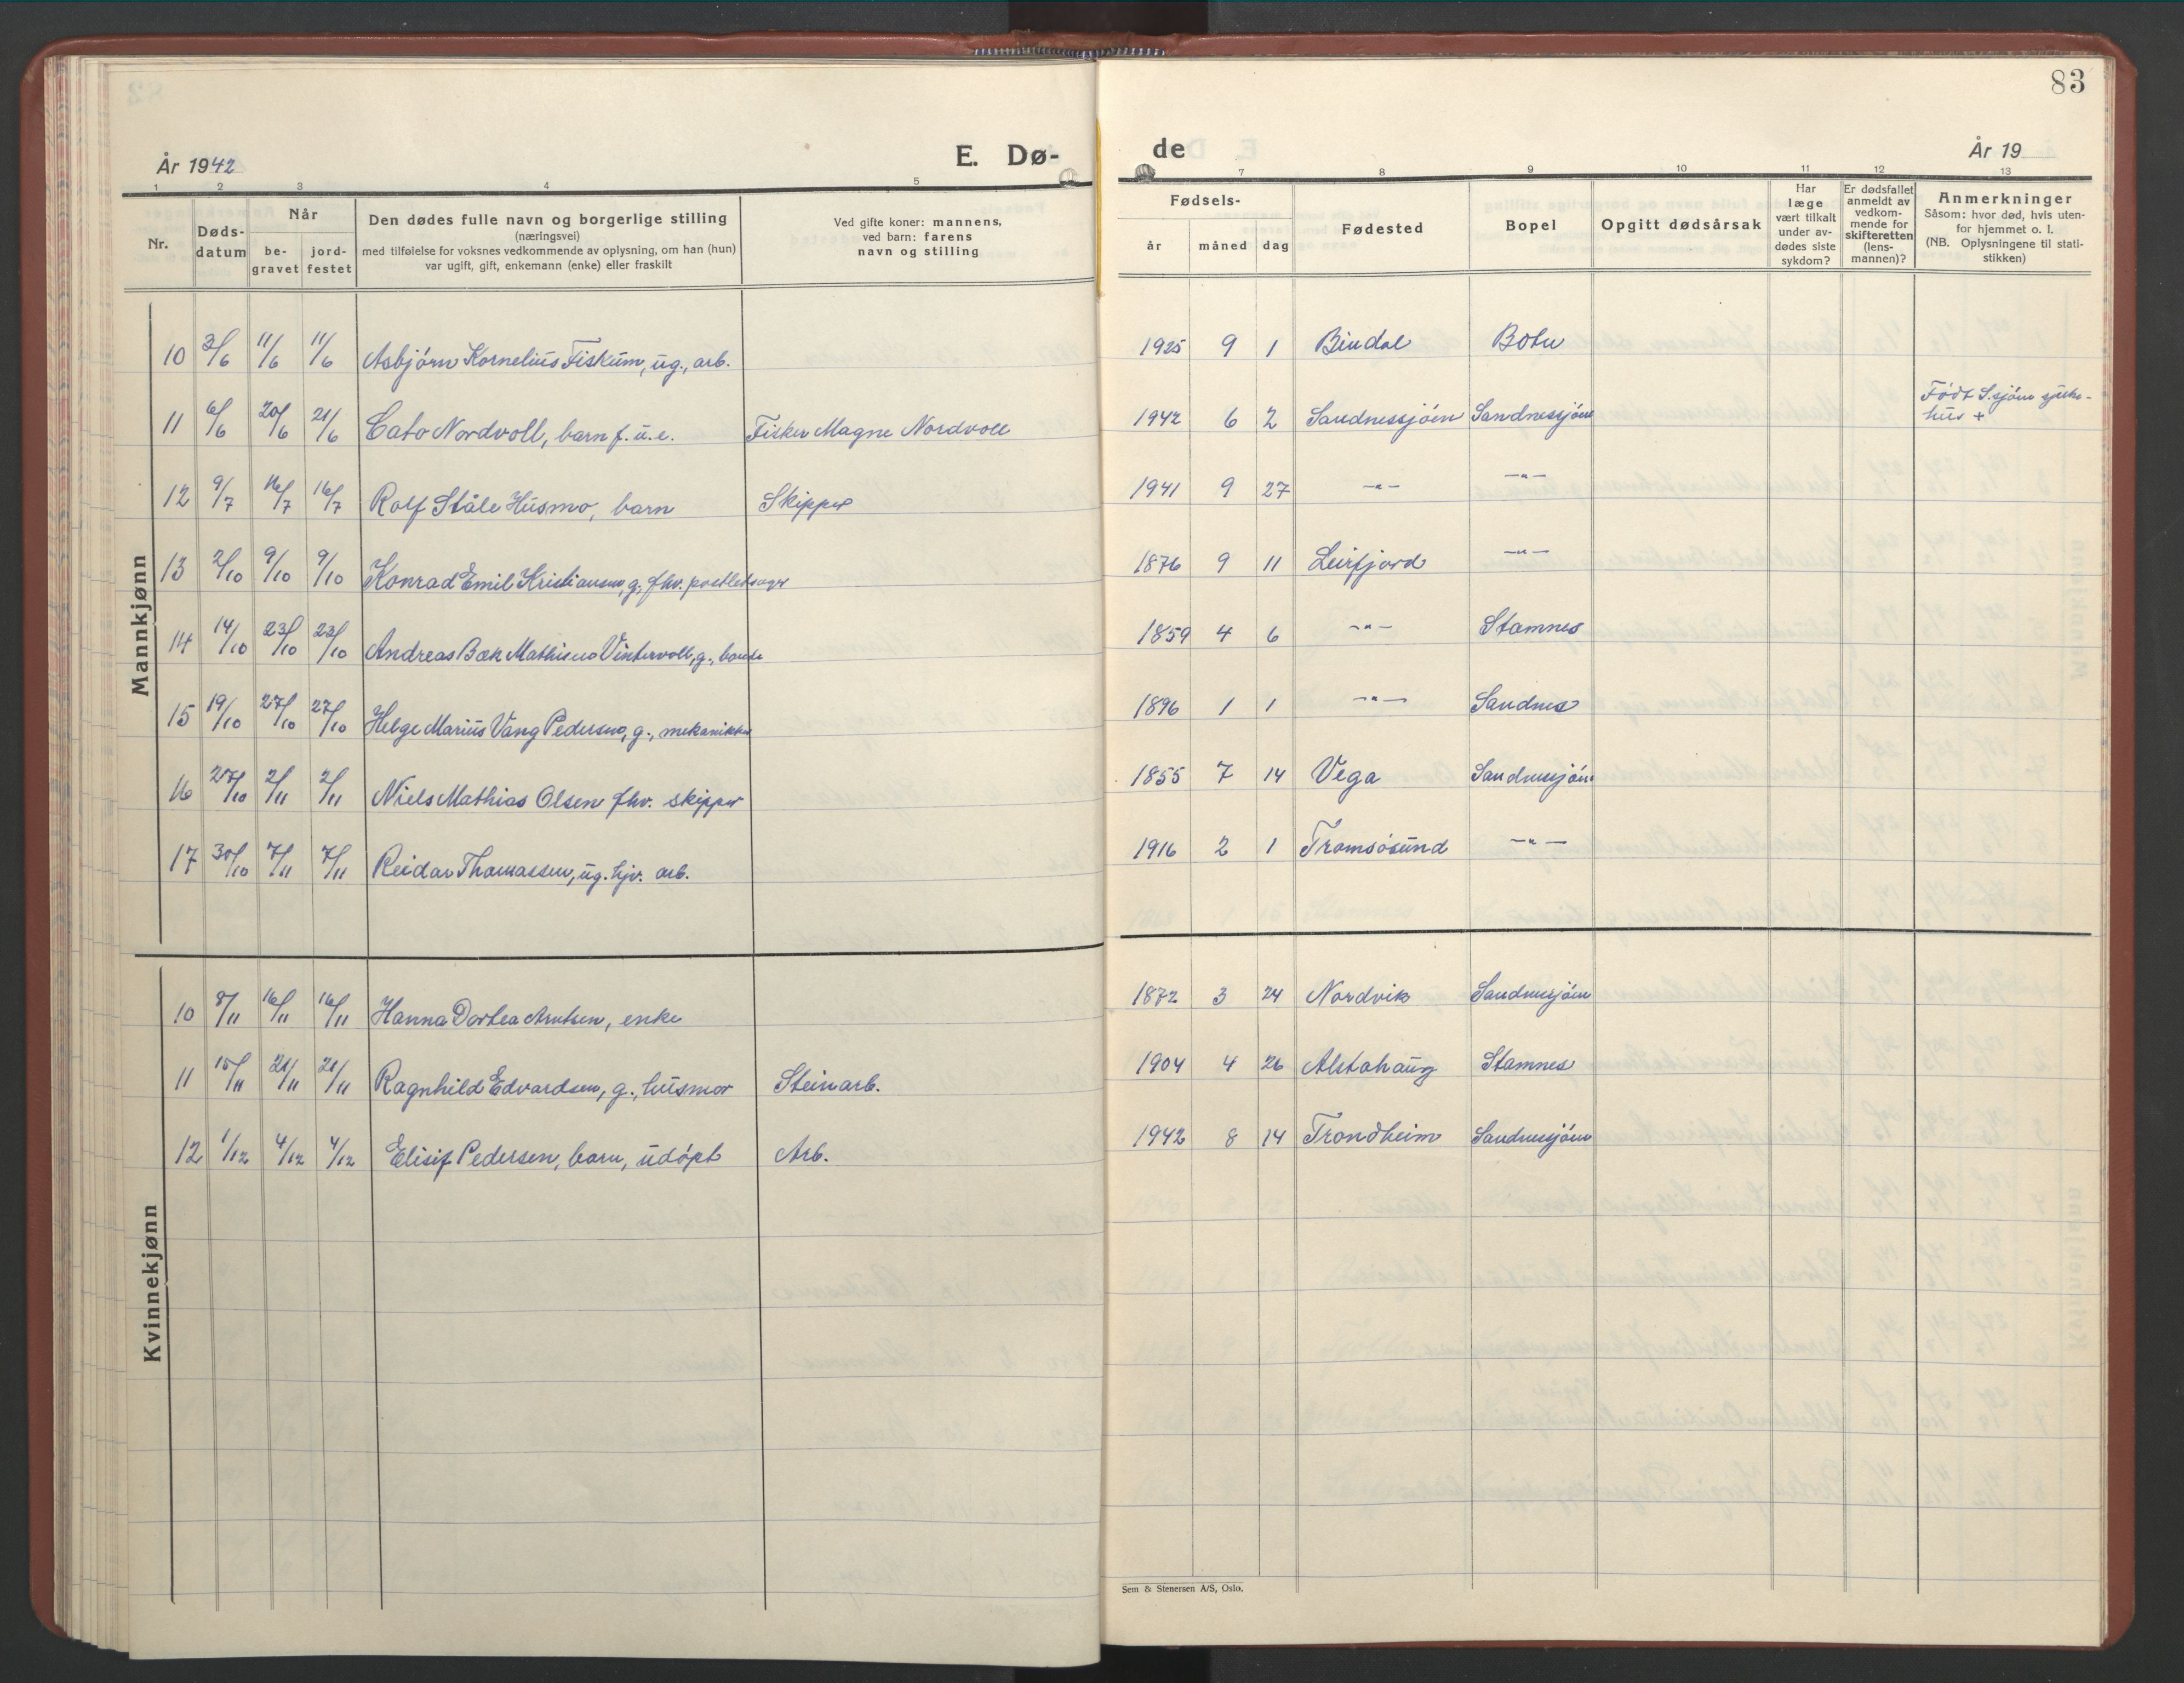 83
År 1942 E. Dø- de År 19
1 2 3 4 5 7 8 9 10 11 12 13
Nr.
Døds-
datum
Når
be-
gravet
jord-
festet
Den dødes fulle navn og borgerlige stilling
(næringsvei)
med tilføielse for voksnes vedkommende av oplysning, om han (hun)
var ugift, gift, enkemann (enke) eller fraskilt
Ved gifte koner: mannens,
ved barn: farens
navn og stilling
Fødsels-
år måned dag
Fødested
Bopel
Opgitt dødsårsak
Har
læge
vært tilkalt
under av-
dødes siste
sykdom?
Er dødsfallet
anmeldt av
vedkom-
mende for
skifteretten
(lens-
mannen)?
Anmerkninger
Såsom: hvor død, hvis uten-
for hjemmet o. l.
(NB. Oplysningene til stati-
stikken)
Mannkjønn
10 3/6 11/6 11/6 Asbjörn Kornelius Fiskum, ug., arb. 1925 9 1 Bindal Botn
11 6/6 20/6 21/6 Cato Nordvoll, barn f. u. e. Fisker Magne Nordvoll 1942 6 2 Sandnessjöen Sandnessjöen Födt S.sjöen sjuke-
hus +
12 9/7 16/7 16/7 Rolf Ståle Husmo, barn Skipper 1941 9 27 -"- -"-
13 2/10 9/10 9/10 Konrad Emil Kristiansen, g., fhv. postledsager 1876 9 11 Leirfjord -"-
14 14/10 23/10 23/10 Andreas Bæk Mathisen Vintervoll, g., bonde 1859 4 6 -"- Stamnes
15 19/10 27/10 27/10 Helge Marius Vang Pedersen, g., mekaniker 1896 1 1 -"- Sandnes
16 27/10 2/11 2/11 Niels Mathias Olsen fhv. skipper 1855 7 14 Vega Sandnessjöen
17 30/10 7/11 7/11 Reidar Thomassen, ug. hjv. arb. 1916 2 1 Tromsösund -"-
Kvinnekjønn
10 8/11 16/11 16/11 Hanna Dortea Arntsen, enke 1872 3 24 Nordvik Sandnessjöen
11 15/11 21/11 21/11 Ragnhild Edvardsen, g., husmor Steinarb. 1904 4 26 Alstahaug Stamnes
12 1/12 4/12 4/12 Elisif Pedersen, barn, udöpt Arb. 1942 8 14 Trondheim Sandnessjöen
Sem & Stenersen A/S, Oslo.